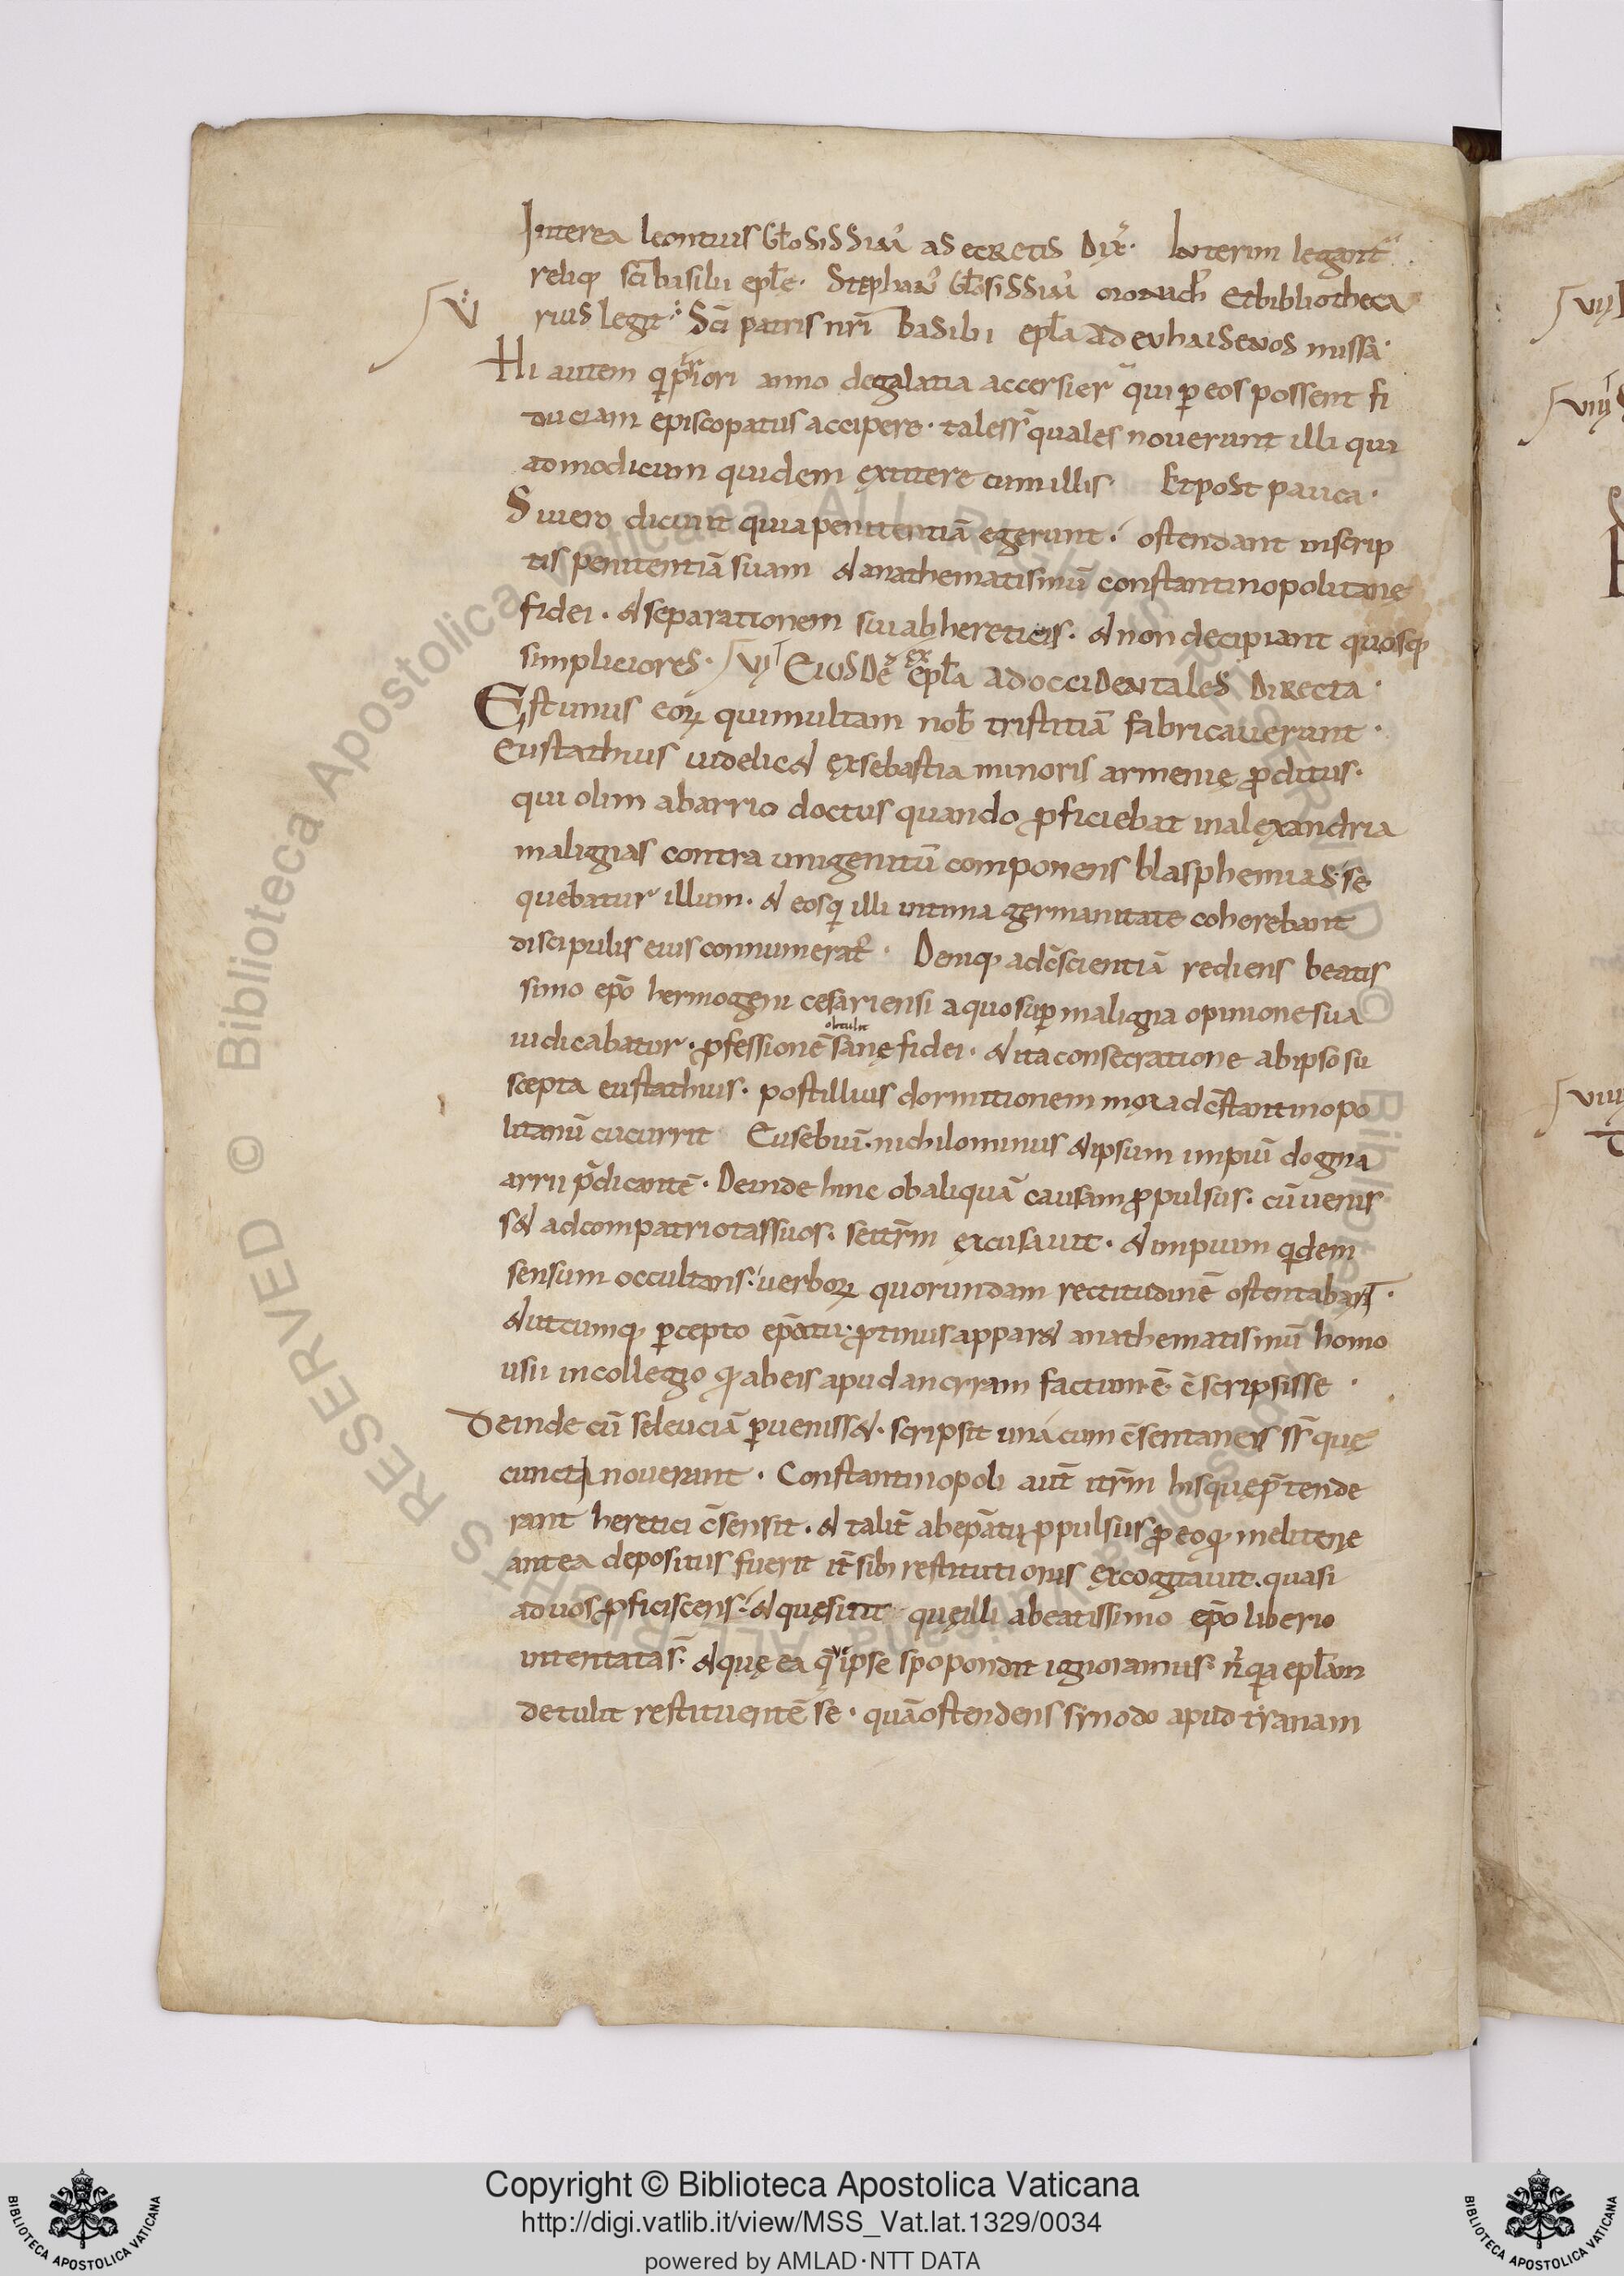 Interea leontius Gło sissim' asecretis Dix̄. Interim legant̄
reliq; sc̄i basilii epłe. Stephan' Głosissim' monach' Et bibliotheca
VI
rius legit: Sc̄i patris nr̄i Basilii epła ad evhaisenos missa.
Hi autem q̨ priori anno degalatia accersier̄ qui p̱ eos possent fi
duciam episcopatus accipere. tales sr̄ quales noverunt illi qui
admodicum quidem extitere cum illis. Et post pauca.
Si uero dicunt quia penitentiā egerunt. ostendant inscrip
tis penitentiā suam & anathematismū constantinopolitanę
fidei. & separationem sui ab hereticis. & non decipiant quosq;
simpliciores. VII Eiusdē ex epła ad occidentales directa.
Est unus eoꝝ qui multam nob̄ tristitiā fabricaverunt.
Eustathius videlic& exsebastia minoris armenię ꝓditus.
qui olim ab arrio doctus quando ꝓficiebat in alexandria
malignas contra unigenitū componens blasphemias. se
quebatur illum. & eosq̨ illi intima germanitate coherebant
discipulis eius connumerat'. Deniq; ad c̄scientiā rediens beatis
simo ep̄o hermogeni cesariensi a quo sup̱ maligna opinione sua
iudicabatur. ꝓfessionē obtulit sanę fidei. & ita consecratione ab ipso su
scepta eustathius. post illius dormitionem mox ad c̄stantinopo
litanū cucurrit Eusebiū. nichilominus & ipsum impiū dogma
arrii p̄dicantē. Deinde hinc ob aliquā causam ꝓpulsus. cū uenis
s& ad compatriotas suos. se itr̄m excusauit. & impium q̨dem
sensum occultans. uerboꝝ quorundam rectitudinē ostentabat.
& utcumq; p̱cepto ep̄atu. ꝓtinus appar& anathematismū homo
usii in collegio q; ab eis apud ancyram factum ē c̄scripsisse.
Deinde cū seleuciā p̱ueniss&. scripsit una cum c̄sentaneis sr̄ quę
cuncti nouerunt. Constantinopoli aut̄ itr̄m his quę p̄tende
rant heretici c̄sensit. & talit̄ ab ep̄atu ꝓpulsus ꝓ eo q; melitene
antea depositus fuerit it̄ sibi restitutionis excogitauit. quasi
ad uos ꝓficiscens. & quęsitit quę illi a beatissimo ep̄o liberio
intentata s̄. & quę ea quę ipse spopondit ignoramus. n̄ q̨a epłam
detulit restituentē se. quā ostendens synodo apud tyanam
Copyright © Biblioteca Apostolica Vaticana
http://digi.vatlib.it/view/MSS_Vat.lat.1329/0034
powered by AMLAD·NTT DATA
BIBLIOTECA APOSTOLICA VATICANA
BIBLIOTECA APOSTOLICA VATICANA